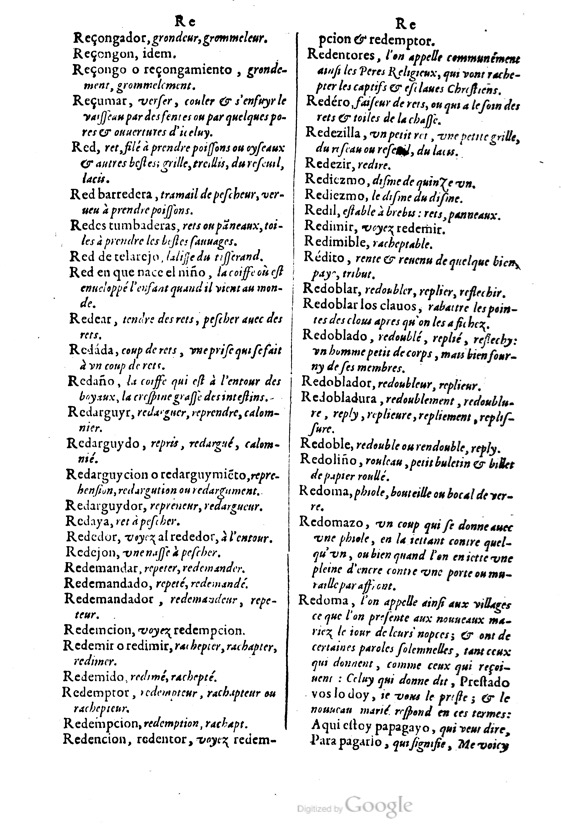 Re
Reçongador, grondeur, grommeleur.
Reçongon, idem.
Reçongo o reçongamiento, gronde-
ment, grommelement.
Reçumar, verser, couler & s'enfuyr le
vaisseau par des fentes ou par quelques po-
res & ouuertures d'iceluy.
Red, ret, filé à prendre poissons ou oyseaux
& autres bestes; grille, treillis, du reseuil,
lacis.
Red barredera, tramail de pescheur, ver-
ueu à prendre poissons.
Redes tumbaderas, rets ou pãneaux, toi-
les à prendre les bestes sauuages.
Red de telarejo, la lisse du tisserand.
Red en que nace el niño, la coiffe où est
enueloppé l'enfant quand il vient au mon-
de.
Redear, tendre des rets, pescher auec des
rets.
Redáda, coup de rets, vne prise qui se fait
à vn coup de rets.
Redaño, la coiffe qui est à l'entour des
boyaux, la crespine grasse des intestins.
Redarguyr, redarguer, reprendre, calom-
nier.
Redarguydo, repris, redargué, calom-
nié.
Redarguycion o redarguymiẽto, repre-
hension, redargution ou redargument.
Redarguydor, repreneur, redargueur.
Redaya, ret à pescher.
Rededor, voyez al rededor, à l'entour.
Redejon, vne nasse à pescher.
Redemandar, repeter, redemander.
Redemandado, repeté, redemandé.
Redemandador, redemandeur, repe-
teur.
Redemcion, voyez redempcion.
Redemir o redimir, rachepter, rachapter,
redimer.
Redemido, redimé, rachepté.
Redemptor, redempteur, rachapteur ou
rachepteur.
Redempcion, redemption, rachapt.
Redencion, redentor, voyez redem-
Re
pcion & redemptor.
Redentores, l'on appelle communément
ainsi les Peres Religieux, qui vont rache-
pter les captifs & esclaues Chrestiens.
Redéro, faiseur de rets, ou qui a le soin des
rets & toiles de la chasse.
Redezilla, vn petit ret, vne petite grille,
du riseau ou reseuil, du lacis.
Redezir, redire.
Rediezmo, disme de quinze vn.
Rediezmo, le disme du disme.
Redil, estable à brebis: rets, panneaux.
Redimir, voyez redemir.
Redimible, racheptable.
Rédito, rente & reuenu de quelque bien,
paye, tribut.
Redoblar, redoubler, replier, reflechir.
Redoblar los clauos, rabattre les poin-
tes des cloux apres qu'on les a fichez.
Redoblado, redoublé, replié, reflechy:
vn homme petit de corps, mais bien four-
ny de ses membres.
Redoblador, redoubleur, replieur.
Redobladura, redoublement, redoublu-
re, reply, replieure, repliement, replis-
sure.
Redoble, redouble ou rendouble, reply.
Redoliño, rouleau, petit buletin & billet
de papier roullé.
Redoma, phiole, bouteille ou bocal de ver-
re.
Redomazo, vn coup qui se donne auec
vne phiole, en la iettant contre quel-
qu'vn, ou bien quand l'on en iette vne
pleine d'encre contre vne porte ou mu-
raille par affront.
Redoma, l'on appelle ainsi aux villages
ce que l'on presente aux nouueaux ma-
riez le iour de leurs nopces; & ont de
certaines paroles solemnelles, tant ceux
qui donnent, comme ceux qui reçoi-
uent: Celuy qui donne dit, Prestado
vos lo doy, ie vous le preste; & le
nouueau marié respond en ces termes:
Aqui estoy papagayo, qui veut dire,
Para pagarlo, qui signifie, Me voicy
Digitized by Google